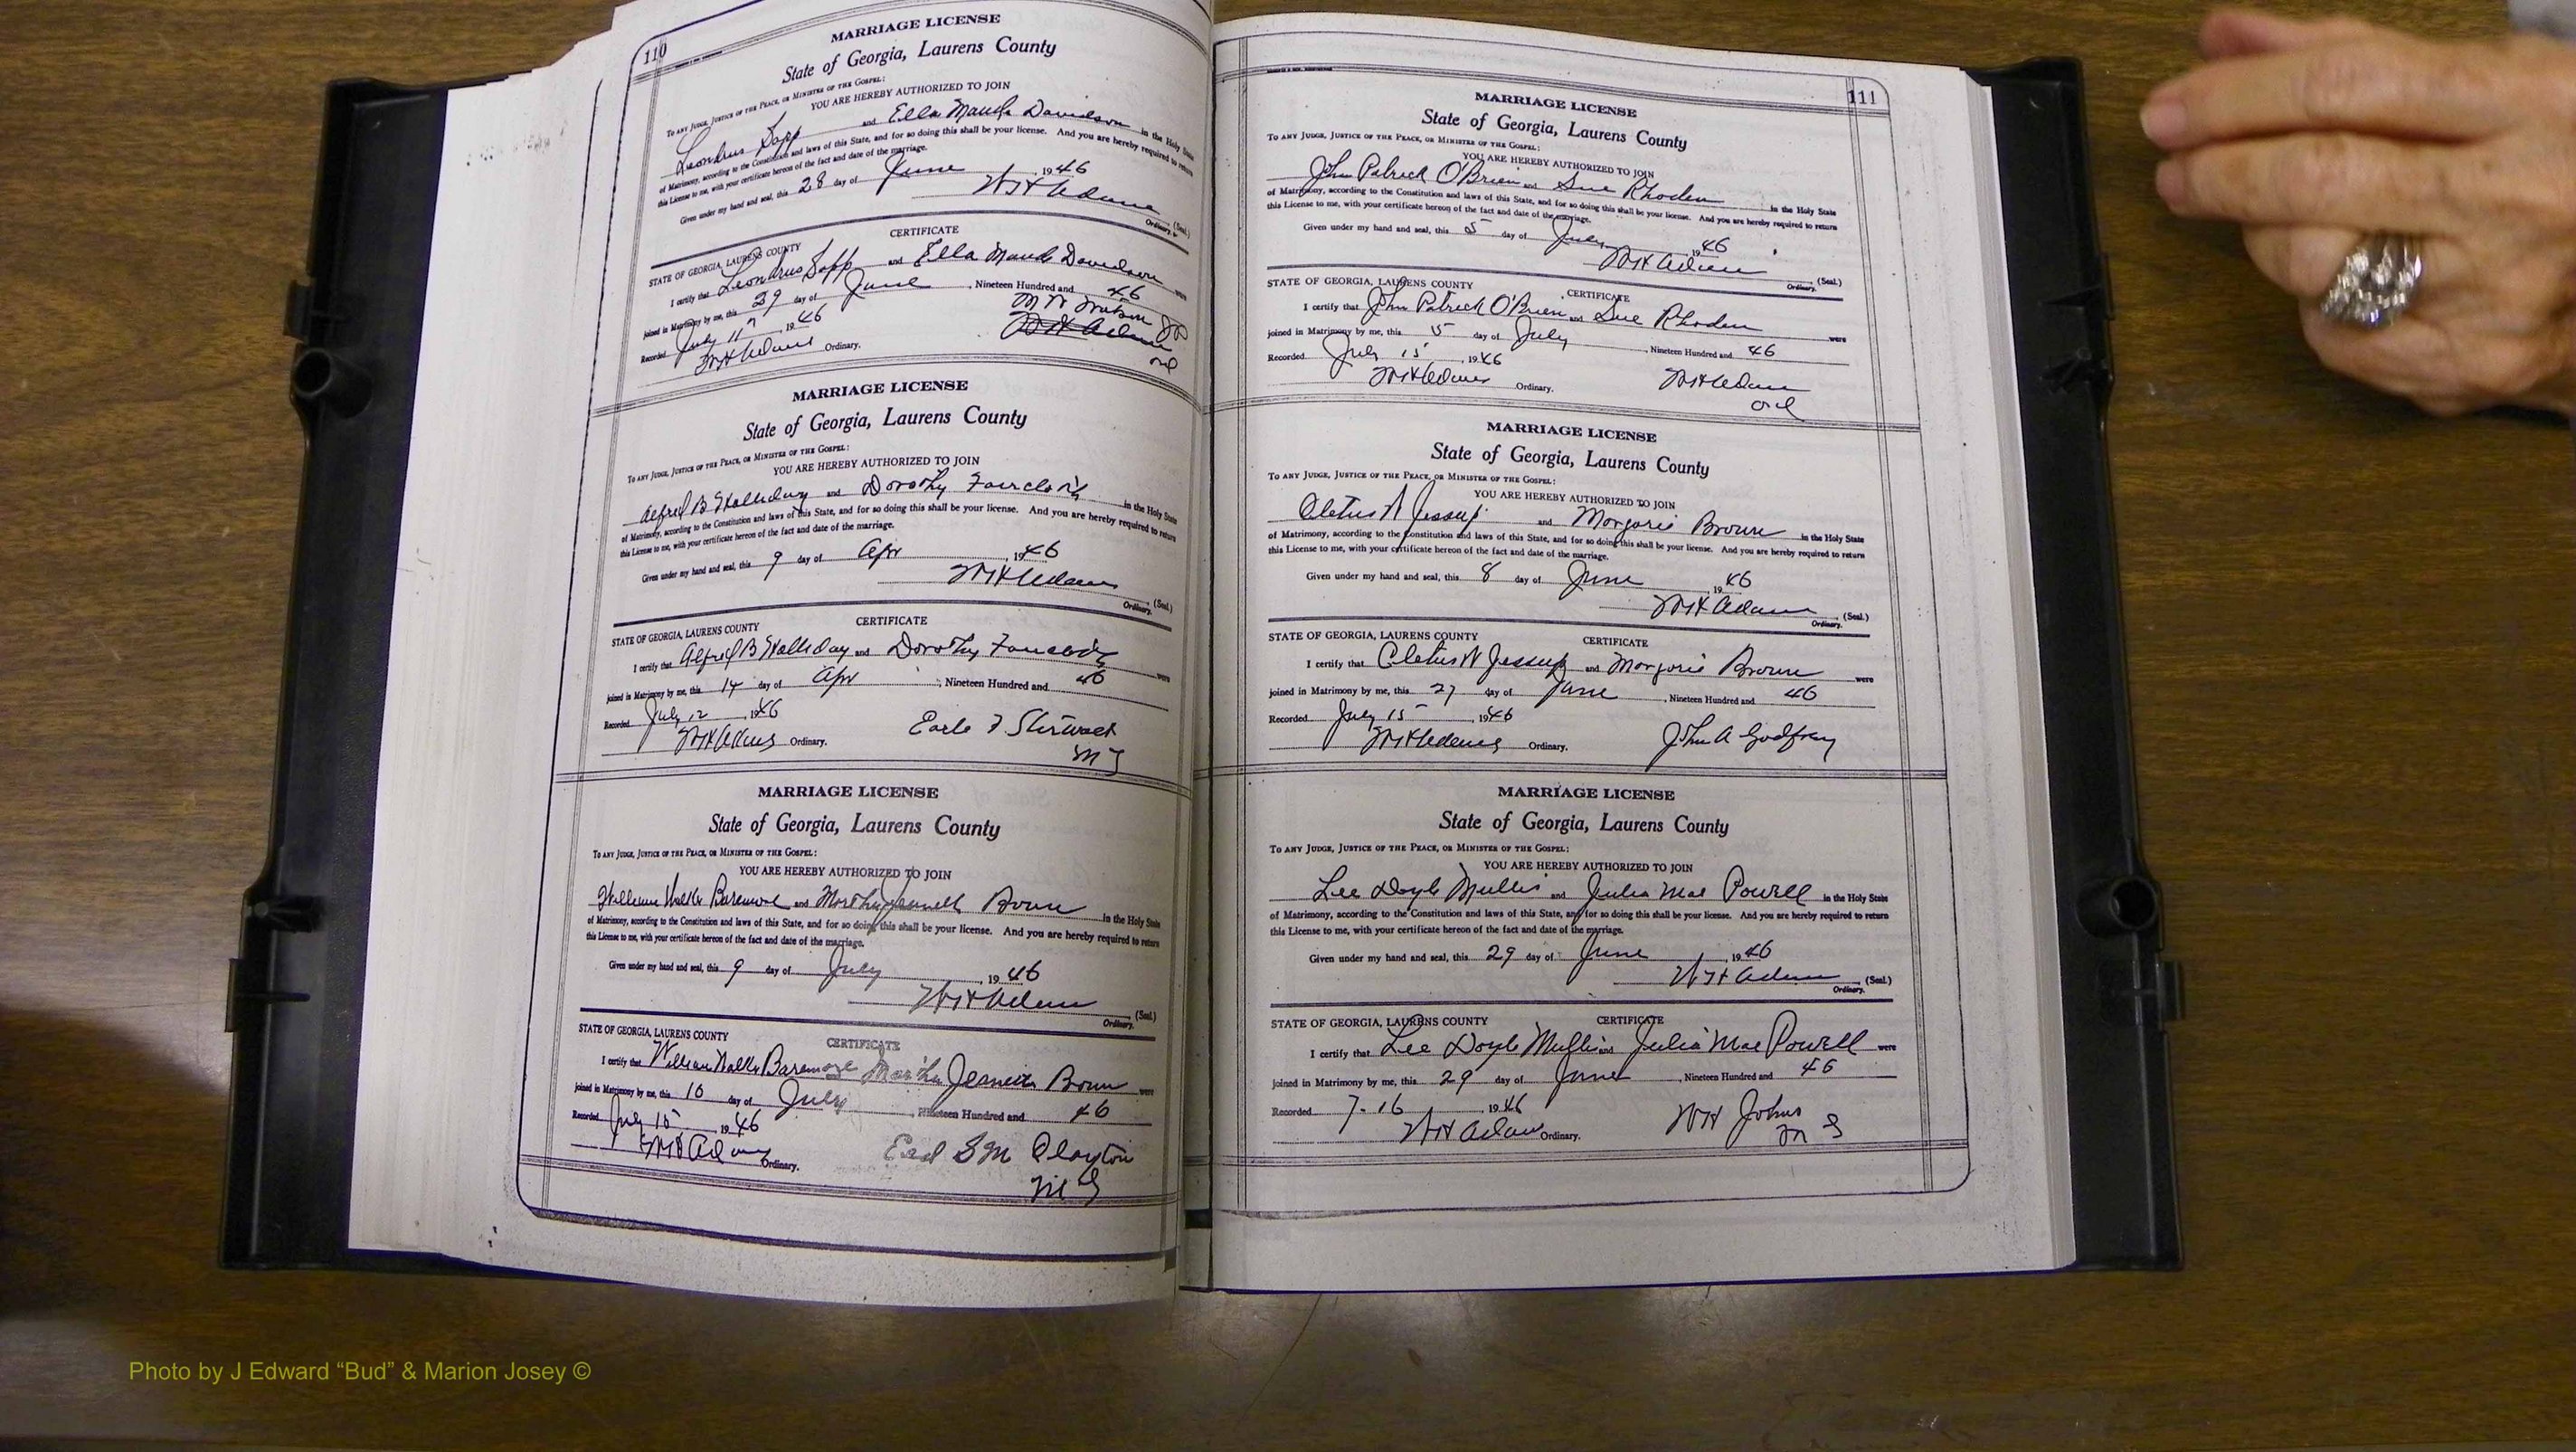 110
MARRIAGE LICENSE
State of Georgia, Laurens County
TO ANY JUDGE, JUSTICE OF THE PEACE, OR MINISTER OF THE GOSPEL:
YOU ARE HEREBY AUTHORIZED TO JOIN
Leondrus Sapp and Ella Maude Davidson in the Holy State
of Matrimony, according to the Constitution and laws of this State, and for so doing this shall be your license. And you are hereby required to return
this License to me, with your certificate hereon of the fact and date of the marriage.
Given under my hand and seal, this 28 day of June 1946
W H Adams (Seal.)
Ordinary.
CERTIFICATE
STATE OF GEORGIA, LAURENS COUNTY
I certify that Leondrus Sapp and Ella Maude Davidson were
joined in Matrimony by me, this 29 day of June, Nineteen Hundred and 46
Recorded July 11 1946
W H Adams Ordinary.
W H Adams
ord
MARRIAGE LICENSE
State of Georgia, Laurens County
TO ANY JUDGE, JUSTICE OF THE PEACE, OR MINISTER OF THE GOSPEL:
YOU ARE HEREBY AUTHORIZED TO JOIN
Alfred B Holliday and Dorothy Faircloth in the Holy State
of Matrimony, according to the Constitution and laws of this State, and for so doing this shall be your license. And you are hereby required to return
this License to me, with your certificate hereon of the fact and date of the marriage.
Given under my hand and seal, this 9 day of Apr 1946
W H Adams (Seal.)
Ordinary.
CERTIFICATE
STATE OF GEORGIA, LAURENS COUNTY
I certify that Alfred B Holliday and Dorothy Faircloth were
joined in Matrimony by me, this 14 day of Apr, Nineteen Hundred and 46
Recorded July 12 1946
W H Adams Ordinary.
Earle F Stirwalt
M G
MARRIAGE LICENSE
State of Georgia, Laurens County
TO ANY JUDGE, JUSTICE OF THE PEACE, OR MINISTER OF THE GOSPEL:
YOU ARE HEREBY AUTHORIZED TO JOIN
William Walker Baremore and Martha Jeanette Brown in the Holy State
of Matrimony, according to the Constitution and laws of this State, and for so doing this shall be your license. And you are hereby required to return
this License to me, with your certificate hereon of the fact and date of the marriage.
Given under my hand and seal, this 9 day of July, 1946
W H Adams (Seal.)
Ordinary.
CERTIFICATE
STATE OF GEORGIA, LAURENS COUNTY
I certify that William Walker Baremore Martha Jeanette Brown were
joined in Matrimony by me, this 10 day of July, Nineteen Hundred and 46
Recorded July 15 1946
W H Adams Ordinary.
Earl S M Clayton
M G
111
MARRIAGE LICENSE
State of Georgia, Laurens County
TO ANY JUDGE, JUSTICE OF THE PEACE, OR MINISTER OF THE GOSPEL:
YOU ARE HEREBY AUTHORIZED TO JOIN
John Patrick O'Brien and Sue Rhoden in the Holy State
of Matrimony, according to the Constitution and laws of this State, and for so doing this shall be your license. And you are hereby required to return
this License to me, with your certificate hereon of the fact and date of the marriage.
Given under my hand and seal, this 5 day of July 1946
W H Adams (Seal.)
Ordinary.
STATE OF GEORGIA, LAURENS COUNTY
CERTIFICATE
I certify that John Patrick O'Brien and Sue Rhoden were
joined in Matrimony by me, this 15 day of July, Nineteen Hundred and 46
Recorded July 15, 1946
W H Adams Ordinary.
W H Adams
Ord
MARRIAGE LICENSE
State of Georgia, Laurens County
TO ANY JUDGE, JUSTICE OF THE PEACE, OR MINISTER OF THE GOSPEL:
YOU ARE HEREBY AUTHORIZED TO JOIN
Cletus W Jessup and Marjorie Brown in the Holy State
of Matrimony, according to the Constitution and laws of this State, and for so doing this shall be your license. And you are hereby required to return
this License to me, with your certificate hereon of the fact and date of the marriage.
Given under my hand and seal, this 8 day of June, 1946
W H Adams (Seal.)
Ordinary.
STATE OF GEORGIA, LAURENS COUNTY
CERTIFICATE
I certify that Cletus W Jessup and Marjorie Brown were
joined in Matrimony by me, this 27 day of June, Nineteen Hundred and 46
Recorded July 15, 1946
W H Adams Ordinary.
John A Godfrey
MARRIAGE LICENSE
State of Georgia, Laurens County
TO ANY JUDGE, JUSTICE OF THE PEACE, OR MINISTER OF THE GOSPEL:
YOU ARE HEREBY AUTHORIZED TO JOIN
Lee Doyle Mullis and Julia Mae Powell in the Holy State
of Matrimony, according to the Constitution and laws of this State, and for so doing this shall be your license. And you are hereby required to return
this License to me, with your certificate hereon of the fact and date of the marriage.
Given under my hand and seal, this 29 day of June, 1946
W H Adams (Seal.)
Ordinary.
STATE OF GEORGIA, LAURENS COUNTY
CERTIFICATE
I certify that Lee Doyle Mullis and Julia Mae Powell were
joined in Matrimony by me, this 29 day of June, Nineteen Hundred and 46
Recorded 7-16, 1946
W H Adams Ordinary.
W H Johns
M G
Photo by J Edward “Bud” & Marion Josey ©